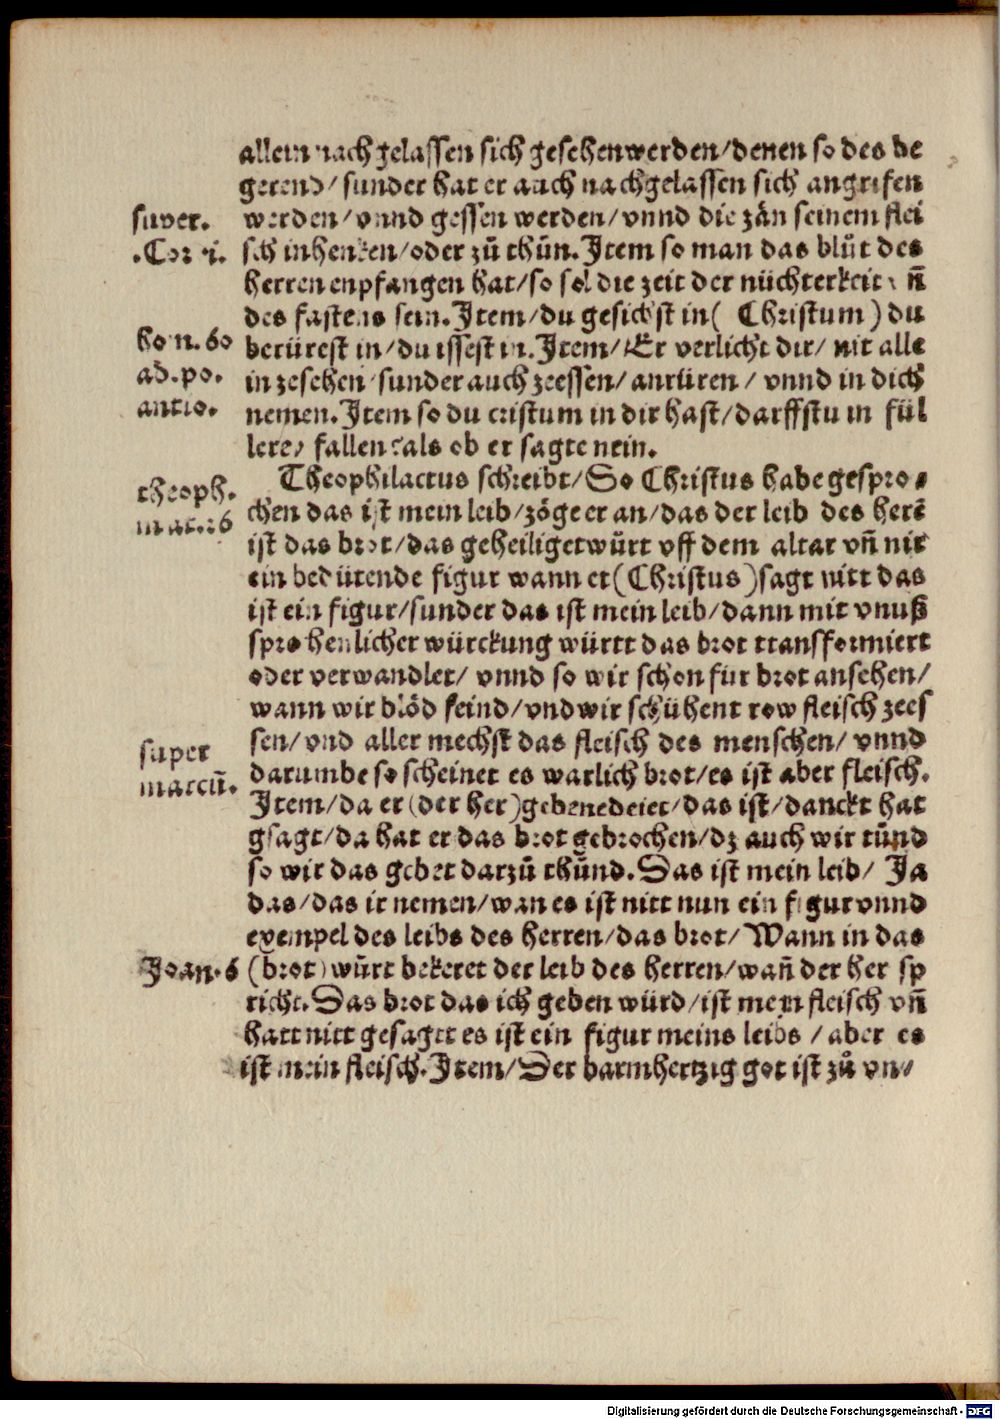 allein nachgelassen sich gesehen werden/denen so des be
gerend/ sunder hat er auch nachgelassen sich angrifen
super.
werden/vnnd gessen werden/vnnd die zän seinem flei
.Cor i.
sch inhencken/oder zů thůn. Item so man das blůt des
herren enpfangen hat/so sol die zeit der nüchterkeit vñ
des fastens sein. Item/du gesichst in( Christum) du
hom. 60
berürest in/du issest in. Item/Er verlicht dir/ nit alle
ad.po.
in zesehen/sunder auch zeessen/ anrüren/ vnnd in dich
antio.
nemen. Item so du cristum in dir hast/darffstu in fül
lere/ fallen? als ob er sagte nein.
theoph.
Theophilactus schreibt/So Christus habe gespro⸗
mat.26
chen das ist mein leib/zöge er an/das der leib des herẽ
ist das brot/das geheiliget würt vff dem altar vñ nit
ein bedütende figur wann er(Christus)sagt nitt das
ist ein figur/sunder das ist mein leib/dann mit vnuß
sprechenlicher würckung württ das brot transformiert
oder verwandlet/ vnnd so wir schon für brot ansehen/
wann wir blöd seind/vnd wir schühent row fleisch zees
super
sen/vnd aller mechst das fleisch des menschen/ vnnd
marcũ.
darumbe so scheinet es warlich brot/es ist aber fleisch.
Item/da er (der her)gebenedeiet/das ist/danckt hat
gsagt/da hat er das brot gebrochen/dz auch wir tůnd
so wir das gebet darzů thůnd. Das ist mein leib/ Ja
das/das ir nemen/wan es ist nitt nun ein figur vnnd
exempel des leibs des herren/das brot/Wann in das
Joan. 6
(brot) würt bekeret der leib des herren/wañ der her sp
richt. Das brot das ich geben würd/ist mein fleisch vñ
hatt nitt gesagtt es ist ein figur meins leibs / aber es
ist mein fleisch. Item/Der barmhertzig got ist zů vn⸗
Digitalisierung gefördert durch die Deutsche Forschungsgemeinschaft - DFG